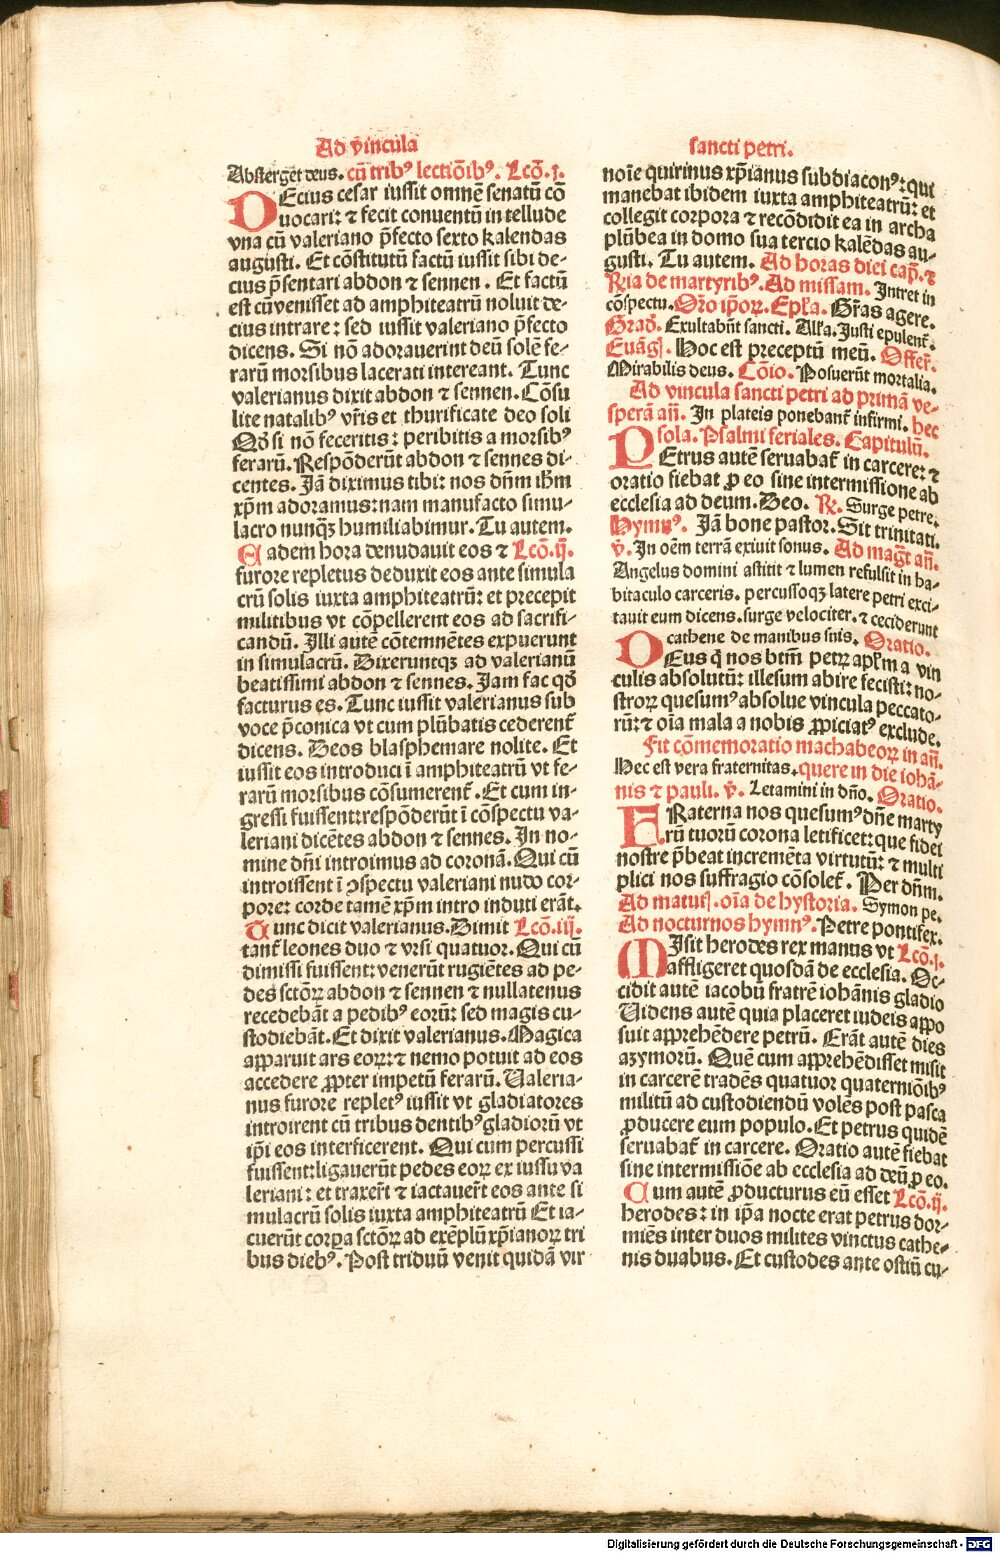 Ad v̄incula
Abstergēt deus. cū tribꝰ lectiōibꝰ. Lcō.j.
DEcius cesar iussit omnē senatū cō
uocari: ⁊ fecit conuentū in tellude
vna cū valeriano p̄fecto sexto kalendas
augusti. Et cōstitutū factū iussit sibi de-
cius p̄sentari abdon ⁊ sennen. Et factū
est cū venisset ad amphiteatrū noluit de-
cius intrare: sed iussit valeriano p̄fecto
dicens. Si nō adorauerint deū solē fe-
rarū morsibus lacerati intereant. Tunc
valerianus dixit abdon ⁊ sennen. Cōsu
lite natalibꝰ vr̄is et thurificate deo soli
Qd̄ si nō feceritis: peribitis a morsibꝰ
ferarū. Respōderūt abdon ⁊ sennes di-
centes. Jā diximus tibi: nos dn̄m ih̄m
xp̄m adoramus: nam manufacto simu-
lacro nunqꝫ humiliabimur. Tu autem.
Eadem hora denudauit eos ⁊ Lcō.ij.
furore repletus deduxit eos ante simula
crū solis iuxta amphiteatrū: et precepit
militibus vt cōpellerent eos ad sacrifi-
candū. Illi autē cōtemnētes expuerunt
in simulacrū. Dixeruntqꝫ ad valerianū
beatissimi abdon ⁊ sennes. Jam fac qd̄
facturus es. Tunc iussit valerianus sub
voce p̄conica vt cum plūbatis cederent̄
dicens. Deos blasphemare nolite. Et
iussit eos introduci ī amphiteatrū vt fe-
rarū morsibus cōsumerent̄. Et cum in-
gressi fuissent: respōderūt ī cōspectu va-
leriani dicētes abdon ⁊ sennes. In no-
mine dn̄i introimus ad coronā. Qui cū
introissent ī ꝯspectu valeriani nudo cor-
pore: corde tamē xp̄m intro induti erāt.
Tunc dicit valerianus. Dimit Lcō.iij.
tant̄ leones duo ⁊ vrsi quatuor. Qui cū
dimissi fuissent: venerūt rugiētes ad pe-
des sctōꝝ abdon ⁊ sennen ⁊ nullatenus
recedebāt a pedibꝰ eorū: sed magis cu-
stodiebāt. Et dixit valerianus. Magica
apparuit ars eoꝝ: ⁊ nemo potuit ad eos
accedere ꝓpter impetū ferarū. Valeria-
nus furore repletꝰ iussit vt gladiatores
introirent cū tribus dentibꝰ gladiorū vt
ip̄i eos interficerent. Qui cum percussi
fuissent: ligauerūt pedes eoꝝ ex iussu va
leriani: et traxer̄t ⁊ iactauer̄t eos ante si
mulacrū solis iuxta amphiteatrū Et ia-
cuerūt corpa sctōꝝ ad exēplū xp̄ianoꝝ tri
bus diebꝰ. Post triduū venit quidā vir
sancti petri.
noīe quirinus xp̄ianus subdiaconꝰ: qui
manebat ibidem iuxta amphiteatrū: et
collegit corpora ⁊ recōdidit ea in archa
plūbea in domo sua tercio kalēdas au-
gusti. Tu autem. Ad horas diei cap̄. ⁊
Rīa de martyribꝰ. Ad missam. Intret in
cōspectu. Or̄o ip̄oꝝ. Epl̄a. Gr̄as agere.
Grad̄. Exultabūt sancti. All̄a. Justi epulent̄.
Euāgl. Hoc est preceptū meū. Offer̄.
Mirabilis deus. Cōio. Posuerūt mortalia.
Ad vincula sancti petri ad primā ve-
sperā an̄. In plateis ponebant̄ infirmi. hec
sola. Psalmi feriales. Capitulū.
PEtrus autē seruabat̄ in carcere: ⁊
oratio fiebat ꝓ eo sine intermissione ab
ecclesia ad deum. Deo. R̄. Surge petre.
Hymnꝰ. Jā bone pastor. Sit trinitati.
v̄. In oēm terrā exiuit sonus. Ad maḡt an̄.
Angelus domini astitit ⁊ lumen refulsit in ha-
bitaculo carceris. percussoqꝫ latere petri exci
tauit eum dicens. surge velociter. ⁊ ceciderunt
cathene de manibus suis. Oratio.
DEus q̄ nos btm̄ petꝝ apl̄m a vin
culis absolutū: illesum abire fecisti: no-
stroꝝ quesumꝰ absolue vincula peccato-
rū: ⁊ oīa mala a nobis ꝓpiciatꝰ exclude.
Fit cōmemoratio machabeoꝝ in an̄.
Hec est vera fraternitas. quere in die iohā-
nis ⁊ pauli. v̄. Letamini in dn̄o. Oratio.
FRaterna nos quesumꝰ dn̄e marty
rū tuorū corona letificet: que fidei
nostre p̄beat incremēta virtutū: ⁊ multi
plici nos suffragio cōsolet̄. Per dn̄m.
Ad matuſ. oīa de hystoria. Symon pe.
Ad nocturnos hymnꝰ. Petre pontifex.
MIsit herodes rex manus vt Lcō.j.
affligeret quosdā de ecclesia. Oc-
cidit autē iacobū fratrē iohānis gladio
Videns autē quia placeret iudeis appo
suit apprehēdere petrū. Erāt autē dies
azymorū. Quē cum apprehēdisset misit
in carcerē tradēs quatuor quaterniōibꝰ
militū ad custodiendū volēs post pasca
ꝓducere eum populo. Et petrus quidē
seruabat̄ in carcere. Oratio autē fiebat
sine intermissiōe ab ecclesia ad deū ꝓ eo.
Cum autē ꝓducturus eū esset Lcō.ij.
herodes: in ip̄a nocte erat petrus dor-
miēs inter duos milites vinctus cathe-
nis duabus. Et custodes ante ostiū cu-
Digitalisierung gefördert durch die Deutsche Forschungsgemeinschaft - DFG